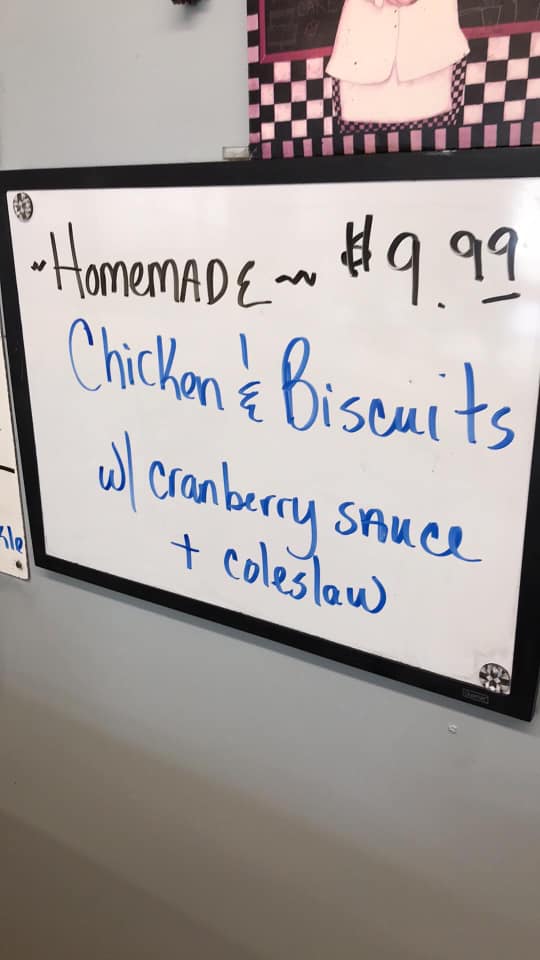 ~Homemade~ $9.99
Chicken & Biscuits
w/ cranberry sauce
+ coleslaw